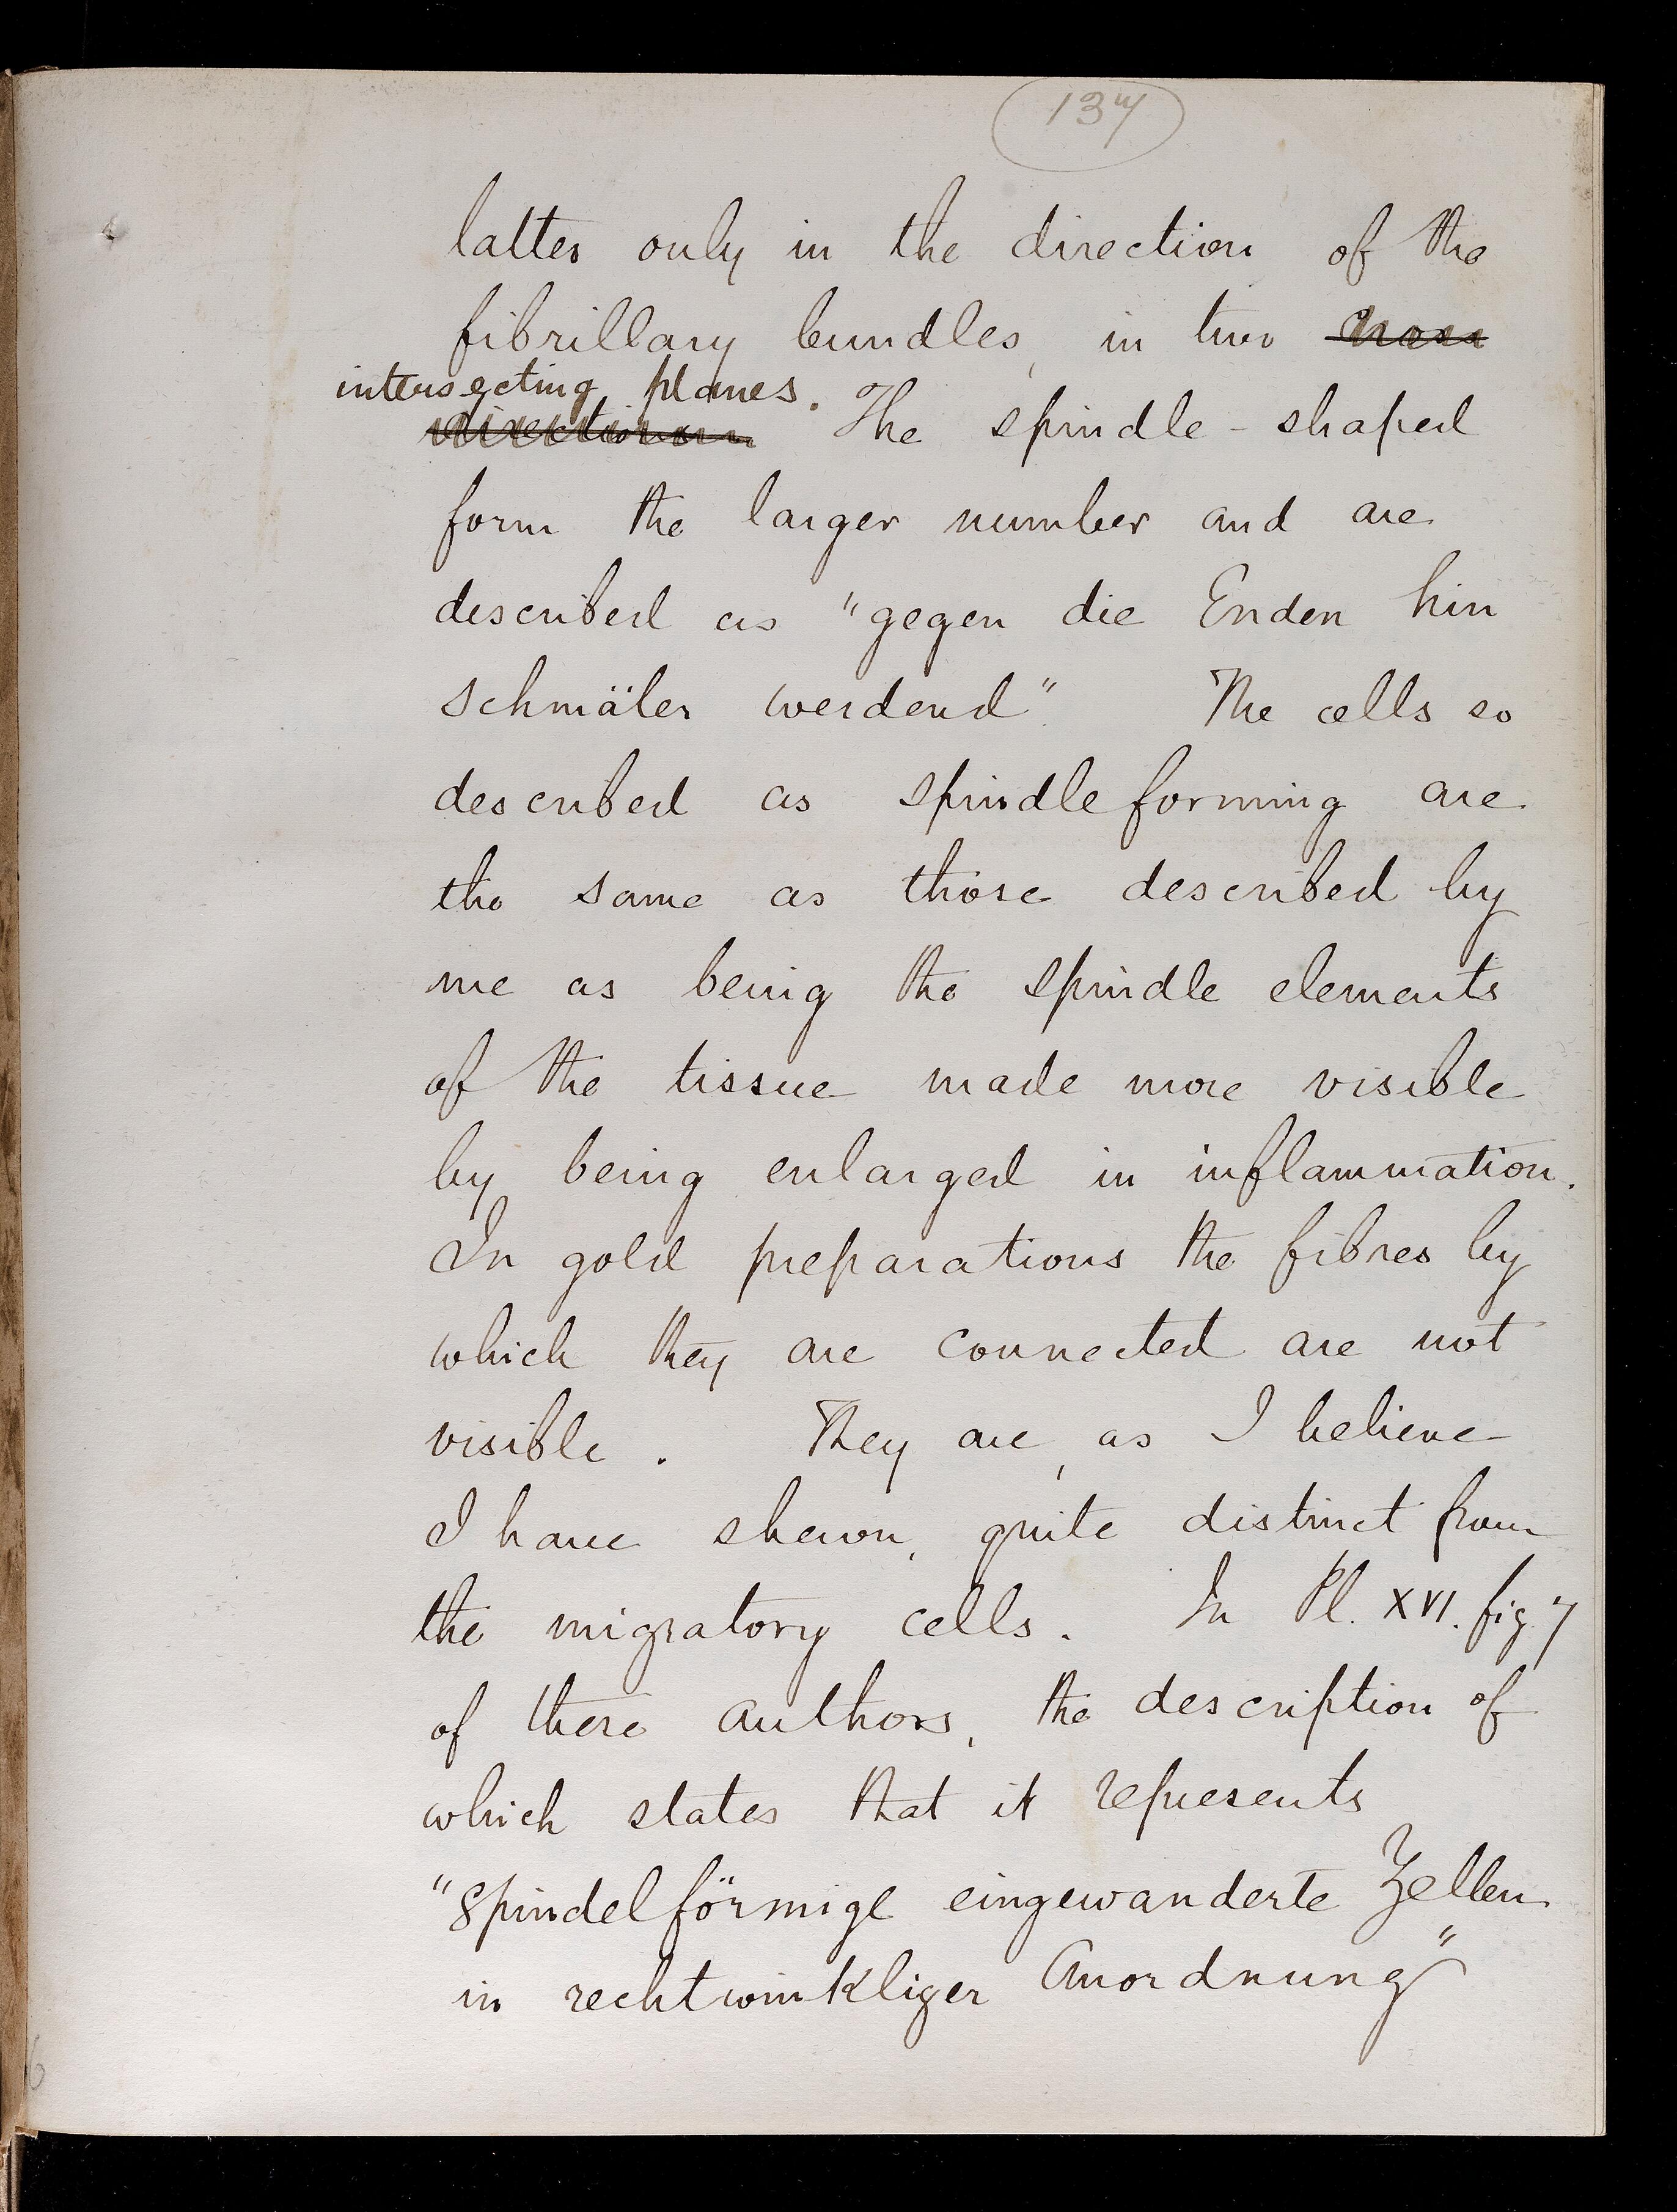 137
latter only in the direction of the
fibrillary bundles, in two cross
intersecting planes.
directions The spindle-shaped
form the larger number and are
described as "gegen die Enden hin
schmäler werdend" The cells so
described as spindleforming are
the same as those described by
me as being the spindle elements
of the tissue made more visible
by being enlarged in inflammation.
In gold preparations the fibres by
which they are connected are not
visible. They are, as I believe
I have shewn, quite distinct from
the migratory cells. In Pl. XVI. fig. 7
of these authors, the description of
which states that it represents
"Spindelförmige eingewanderte Zellen
in rechtwinkliger Anordnung"